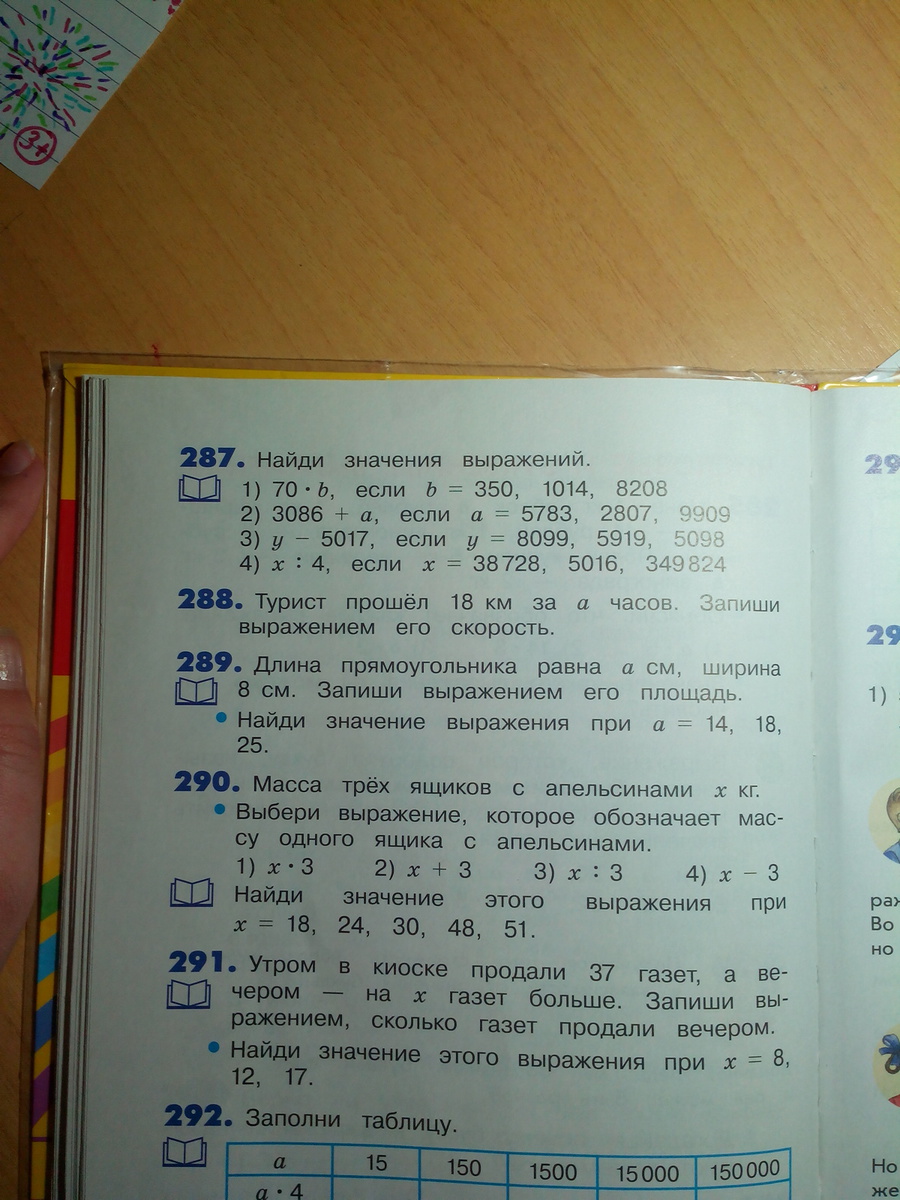 3+
287. Найди значения выражений.
1) 70 · b, если b = 350, 1014, 8208
2) 3086 + a, если a = 5783, 2807, 9909
3) y − 5017, если y = 8099, 5919, 5098
4) x : 4, если x = 38 728, 5016, 349 824
288. Турист прошёл 18 км за a часов. Запиши
выражением его скорость.
289. Длина прямоугольника равна a см, ширина
8 см. Запиши выражением его площадь.
• Найди значение выражения при a = 14, 18,
25.
290. Масса трёх ящиков с апельсинами x кг.
• Выбери выражение, которое обозначает мас-
су одного ящика с апельсинами.
1) x · 3 2) x + 3 3) x : 3 4) x − 3
Найди значение этого выражения при
x = 18, 24, 30, 48, 51.
291. Утром в киоске продали 37 газет, а ве-
чером — на x газет больше. Запиши вы-
ражением, сколько газет продали вечером.
• Найди значение этого выражения при x = 8,
12, 17.
292. Заполни таблицу.
a 15 150 1500 15 000 150 000
a · 4
29
29
1)
Во
но
Но